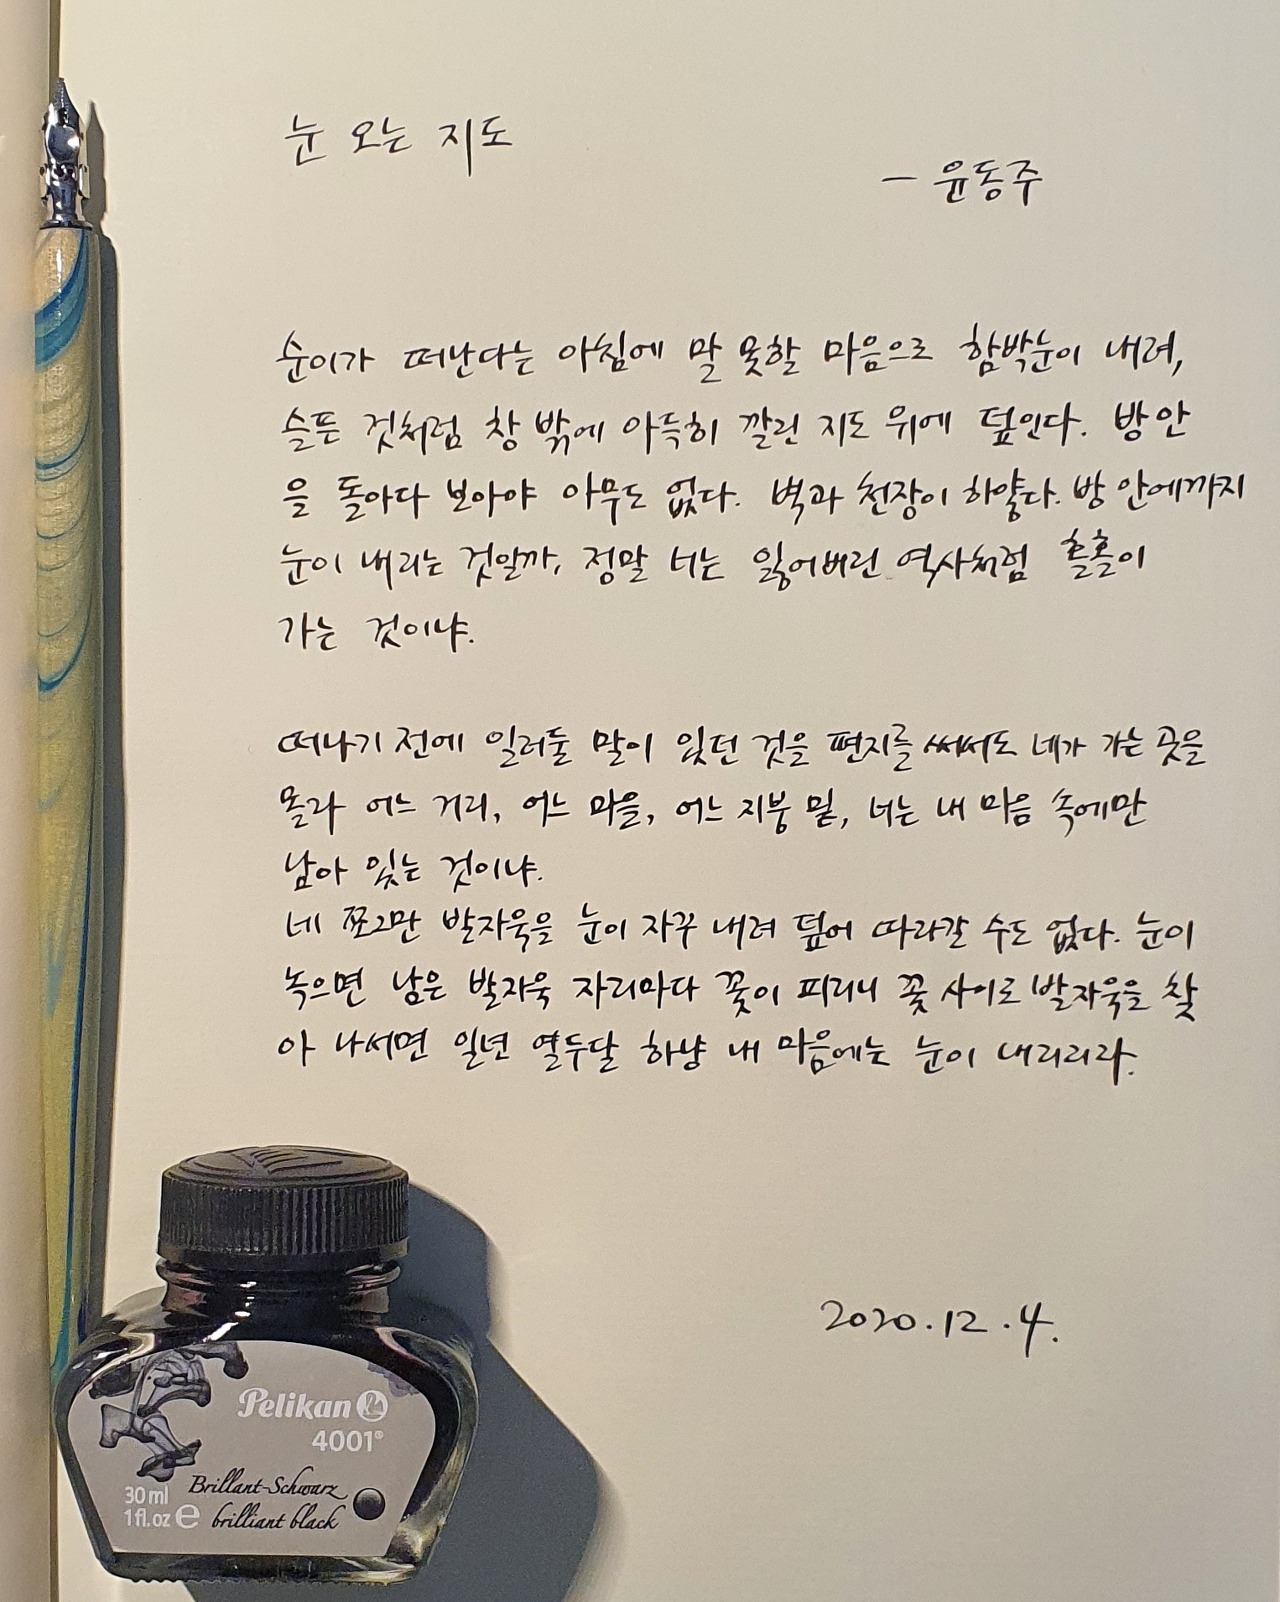 눈 오는 지도
— 윤동주
순이가 떠난다는 아침에 말 못할 마음으로 함박눈이 내려,
슬픈 것처럼 창 밖에 아득히 깔린 지도 위에 덮인다. 방 안
을 돌아다 보아야 아무도 없다. 벽과 천장이 하얗다. 방 안에까지
눈이 내리는 것일까, 정말 너는 잃어버린 역사처럼 훌훌이
가는 것이냐.
떠나기 전에 일러둘 말이 있던 것을 편지를 써서도 네가 가는 곳을
몰라 어느 거리, 어느 마을, 어느 지붕 밑, 너는 내 마음 속에만
남아 있는 것이냐.
네 쪼그만 발자욱을 눈이 자꾸 내려 덮어 따라갈 수도 없다. 눈이
녹으면 남은 발자욱 자리마다 꽃이 피리니 꽃 사이로 발자욱을 찾
아 나서면 일년 열두달 하냥 내 마음에는 눈이 내리리라.
2020.12.4.
Pelikan
4001®
Brillant-Schwarz
30 ml
1 fl.oz e brilliant black